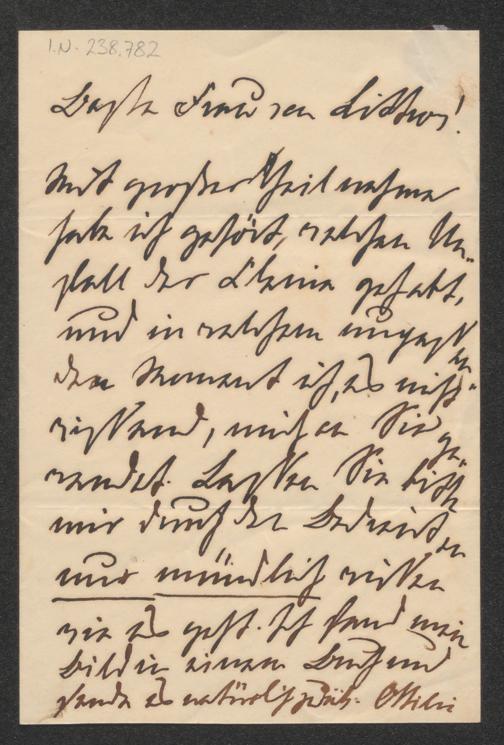 I.N. 238.782
Beste Frau von Littrow!
Mit großer Theilnahme
habe ich gehört, welchen Un-
fall der Kleine gehabt,
und in welchem
den Moment ich, es nicht
wissend, mich an Sie ge-
wendet. Lassen Sie bitte
mir durch den Bedienten
nur mündlich
wie es geht. Ich fand mein
Bild in einem Buch und
sende es natürlich Ottilie